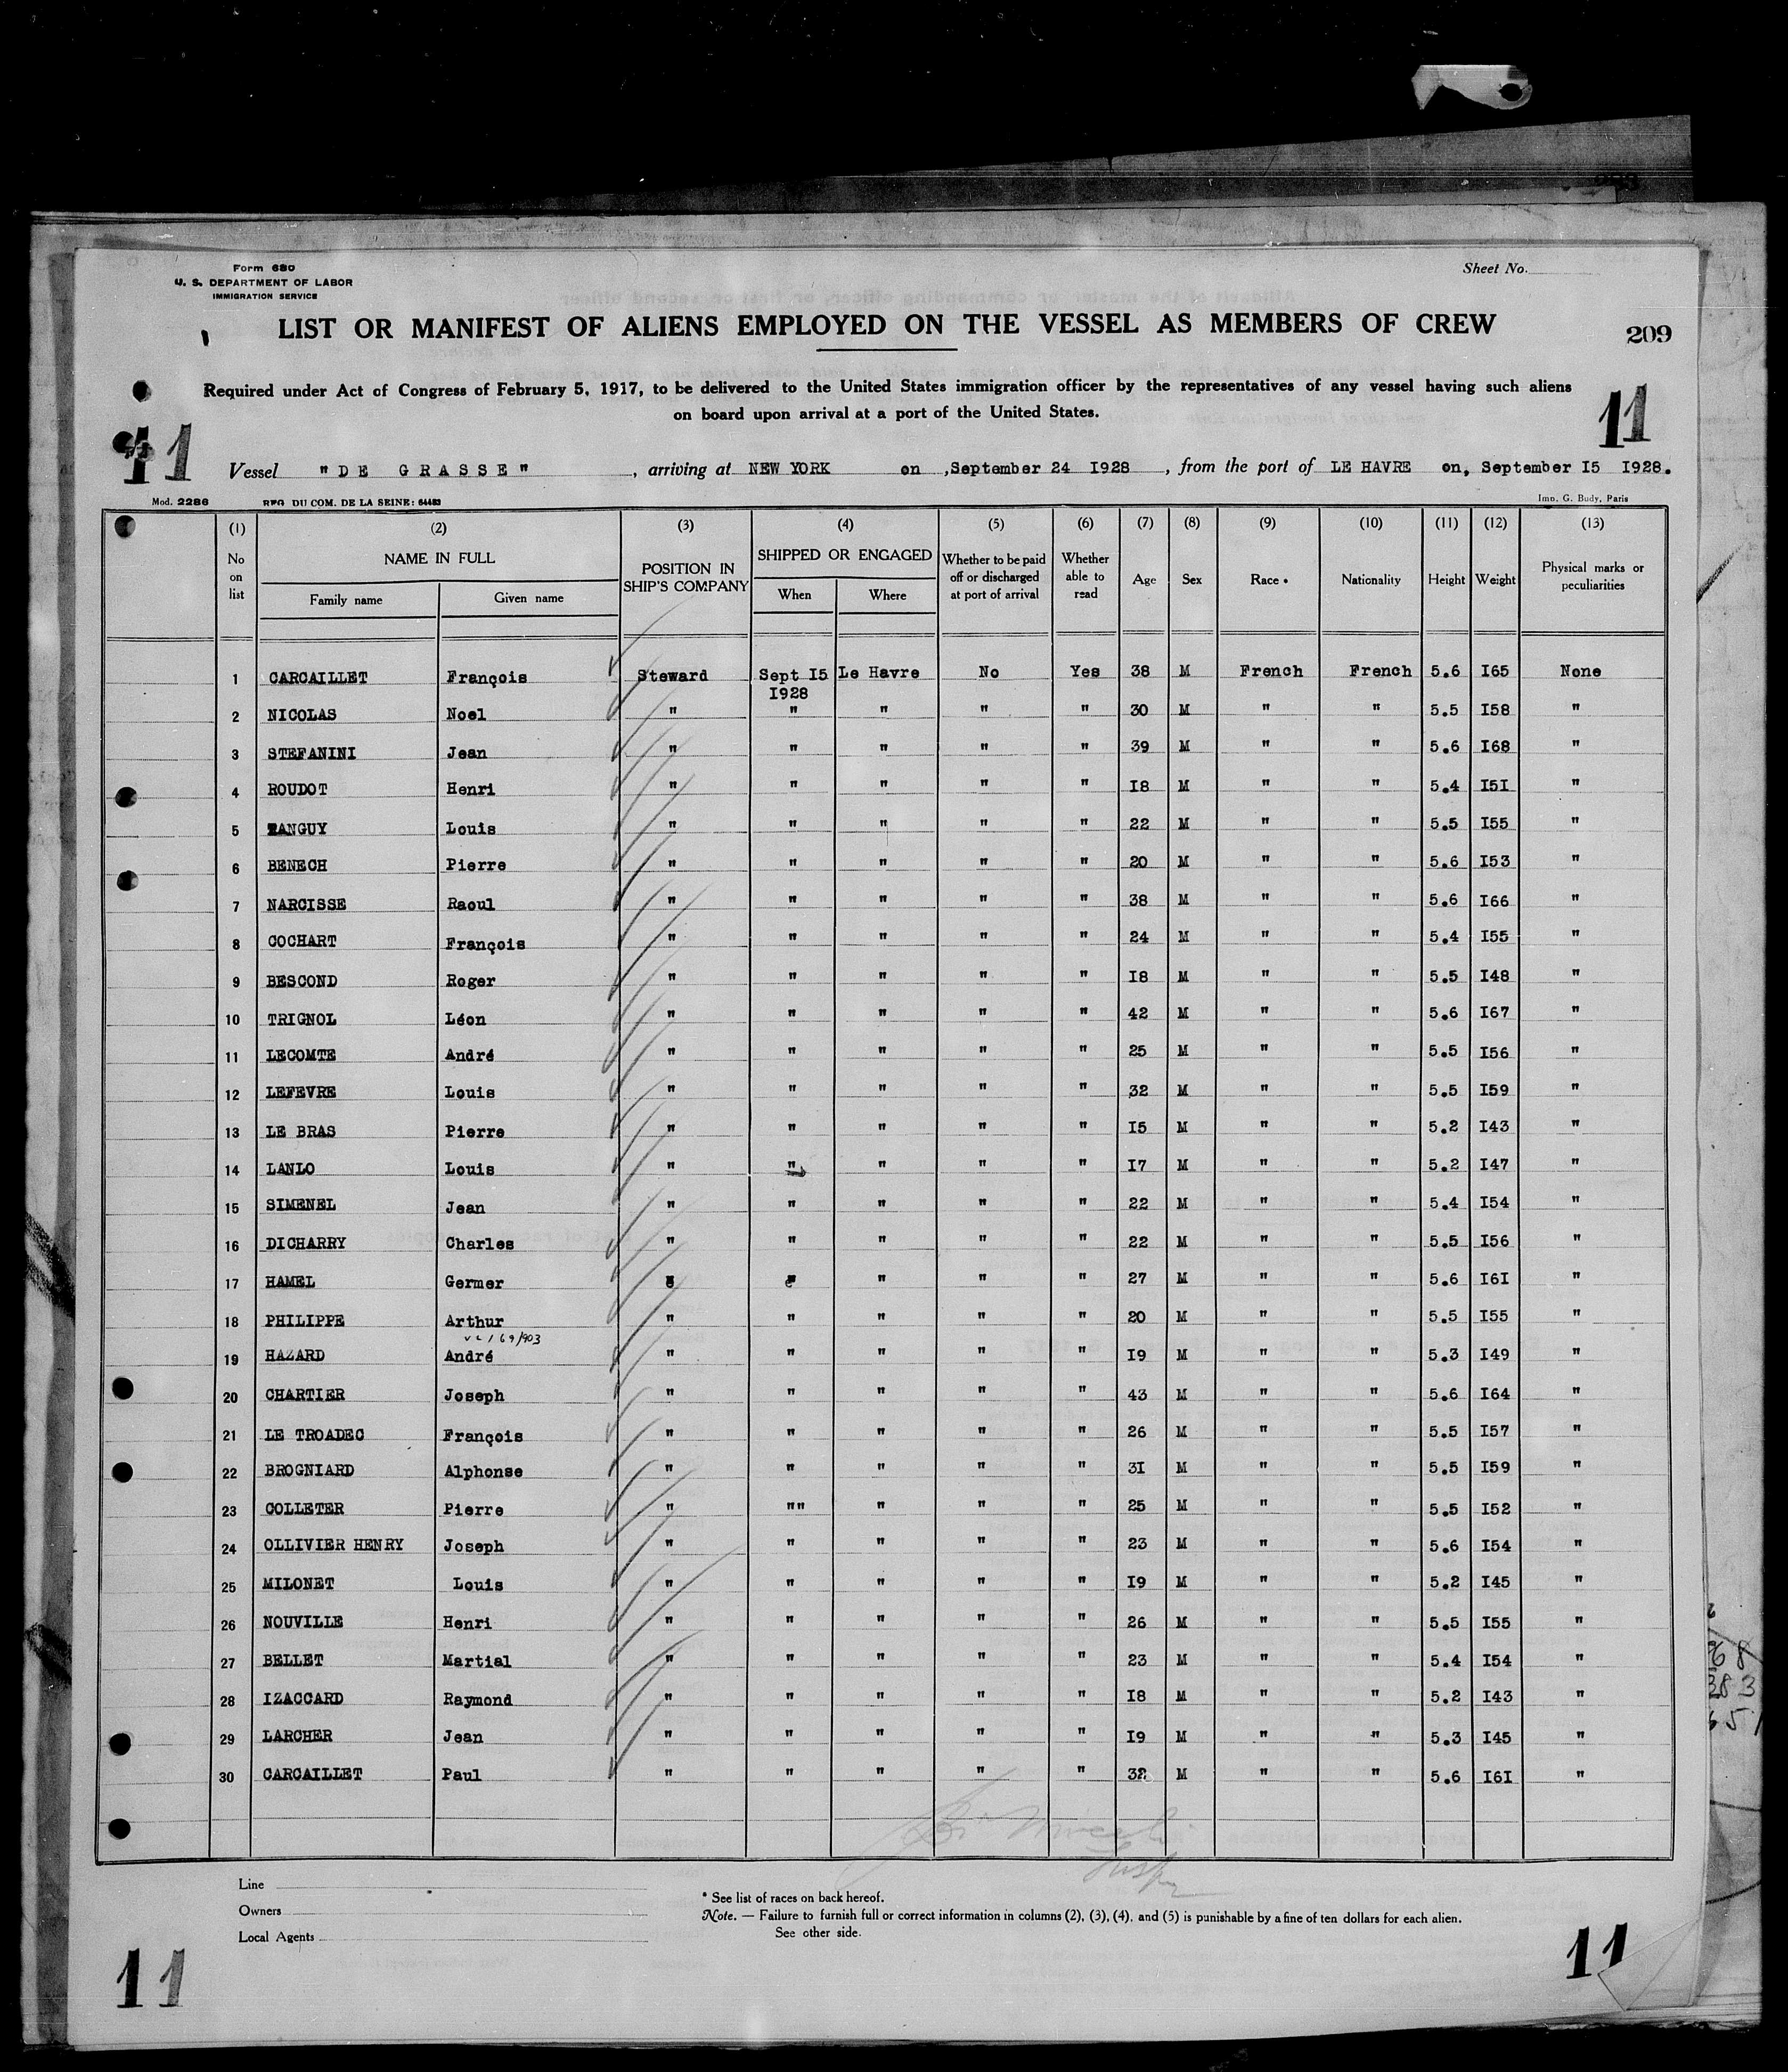 Form 680
U. S. DEPARTMENT OF LABOR
IMMIGRATION SERVICE
Sheet No.
LIST OR MANIFEST OF ALIENS EMPLOYED ON THE VESSEL AS MEMBERS OF CREW
209
Required under Act of Congress of February 5, 1917, to be delivered to the United States immigration officer by the representatives of any vessel having such aliens
on board upon arrival at a port of the United States.
11
11
Vessel "DE GRASSE", arriving at NEW YORK on ,September 24 I928, from the port of LE HAVRE on, September I5 I928.
Mod. 2286 REG DU COM. DE LA SEINE: 64483 Imp. G. Budy, Paris
(1) (2) (3) (4) (5) (6) (7) (8) (9) (10) (11) (12) (13)
No on list NAME IN FULL Family name Given name POSITION IN SHIP'S COMPANY SHIPPED OR ENGAGED When Where Whether to be paid off or discharged at port of arrival Whether able to read Age Sex Race * Nationality Height Weight Physical marks or peculiarities
1 CARCAILLET François Steward Sept I5 I928 Le Havre No Yes 38 M French French 5.6 I65 None
2 NICOLAS Noel " " " " " 30 M " " 5.5 I58 "
3 STEFANINI Jean " " " " " 39 M " " 5.6 I68 "
4 ROUDOT Henri " " " " " I8 M " " 5.4 I5I "
5 TANGUY Louis " " " " " 22 M " " 5.5 I55 "
6 BENECH Pierre " " " " " 20 M " " 5.6 I53 "
7 NARCISSE Raoul " " " " " 38 M " " 5.6 I66 "
8 COCHART François " " " " " 24 M " " 5.4 I55 "
9 BESCOND Roger " " " " " I8 M " " 5.5 I48 "
10 TRIGNOL Léon " " " " " 42 M " " 5.6 I67 "
11 LECOMTE André " " " " " 25 M " " 5.5 I56 "
12 LEFEVRE Louis " " " " " 32 M " " 5.5 I59 "
13 LE BRAS Pierre " " " " " I5 M " " 5.2 I43 "
14 LANLO Louis " " " " " I7 M " " 5.2 I47 "
15 SIMENEL Jean " " " " " 22 M " " 5.4 I54 "
16 DICHARRY Charles " " " " " 22 M " " 5.5 I56 "
17 HAMEL Germer " " " " " 27 M " " 5.6 I6I "
18 PHILIPPE Arthur " " " " " 20 M " " 5.5 I55 "
19 HAZARD André " " " " " I9 M " " 5.3 I49 "
20 CHARTIER Joseph " " " " " 43 M " " 5.6 I64 "
21 LE TROADEC François " " " " " 26 M " " 5.5 I57 "
22 BROGNIARD Alphonse " " " " " 3I M " " 5.5 I59 "
23 COLLETER Pierre " "" " " " 25 M " " 5.5 I52 "
24 OLLIVIER HENRY Joseph " " " " " 23 M " " 5.6 I54 "
25 MILONET Louis " " " " " I9 M " " 5.2 I45 "
26 NOUVILLE Henri " " " " " 26 M " " 5.5 I55 "
27 BELLET Martial " " " " " 23 M " " 5.4 I54 "
28 IZACCARD Raymond " " " " " I8 M " " 5.2 I43 "
29 LARCHER Jean " " " " " I9 M " " 5.3 I45 "
30 CARCAILLET Paul " " " " " 32 M " " 5.6 I6I "
Line
Owners
Local Agents
* See list of races on back hereof.
Note. — Failure to furnish full or correct information in columns (2), (3), (4), and (5) is punishable by a fine of ten dollars for each alien.
See other side.
11
11